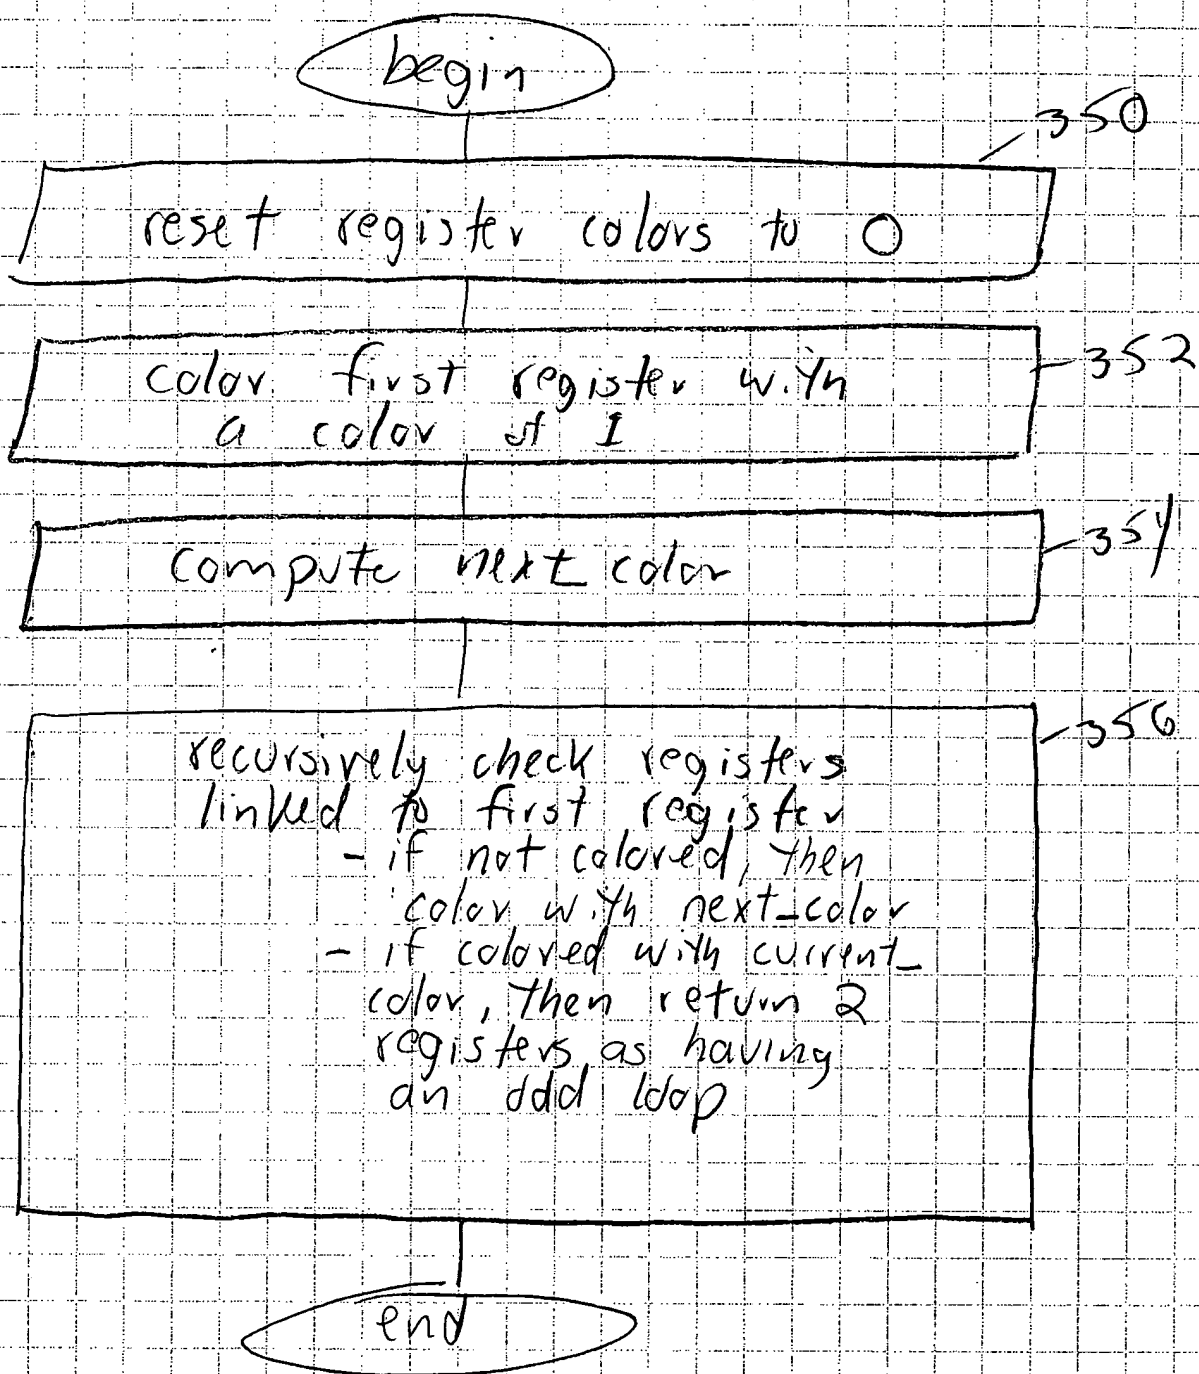 begin
350
reset register colors to 0
color first register with
352
a color of 1
compute next_color
354
356
recursively check registers
linked to first register
- if not colored, then
color with next_color
- if coloved with current_
color, then return 2
registers as having
an odd loop
end